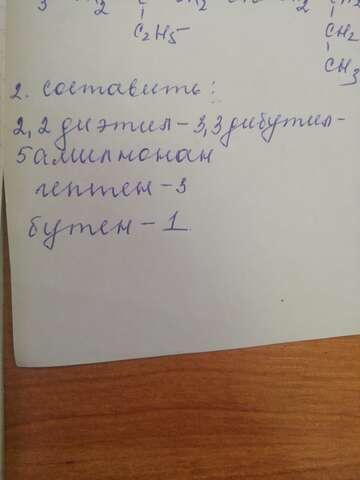 C₂H₅
CH₂
CH₃
2. составить:
2,2 диэтил-3,3 дибутил-
5 амилнонан
гептен-3
бутен-1